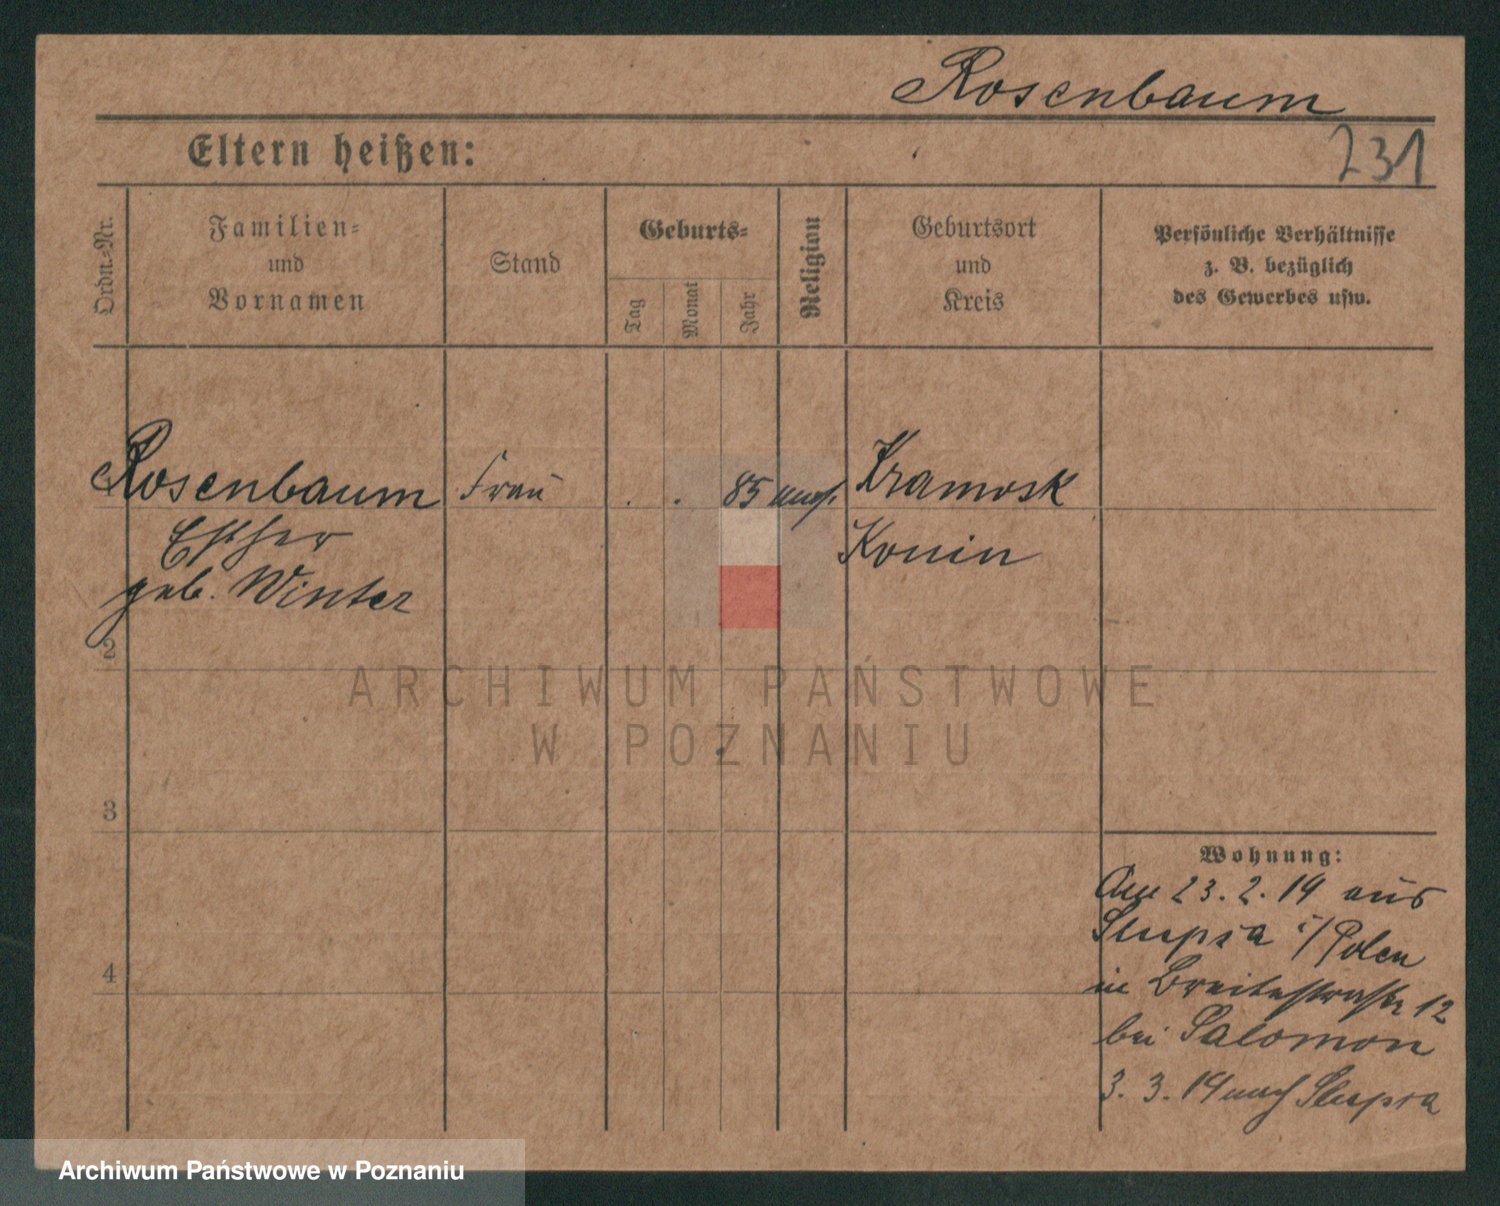 Rosenbaum
231
Eltern heißen:
Ordn.-Nr.
Familien-
und
Vornamen
Stand
Geburts-
Tag
Monat
Jahr
Religion
Geburtsort
und
Kreis
Persönliche Verhältnisse
z. B. bezüglich
des Gewerbes usw.
Rosenbaum Frau . . 85 mos. Kramsk
Esther Konin
geb. Winter
2
3
4
Wohnung:
Am 23.2.19 aus
Slupca i/Polen
in Breitestraße 12
bei Salomon
3.3.19 nach Slupca
ARCHIWUM PAŃSTWOWE
W POZNANIU
Archiwum Państwowe w Poznaniu